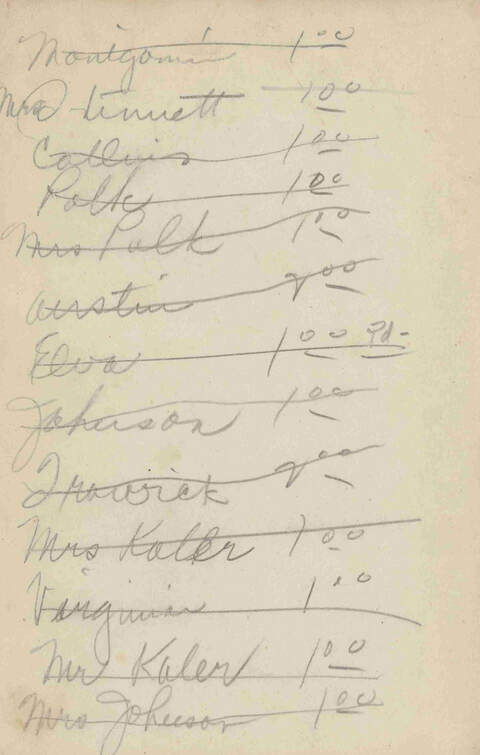 Montgomery 1 00
Mrs Stinnett 1 00
Collins 1 00
Polk 1 00
Mrs Polk 1 00
Austin 2 00
Elva 1 00 Pd-
Johnson 1 00
Trowrick 2 00
Mrs Kaler 1 00
Virginia 1 00
Mr Kaler 1 00
Mrs Johnson 1 00